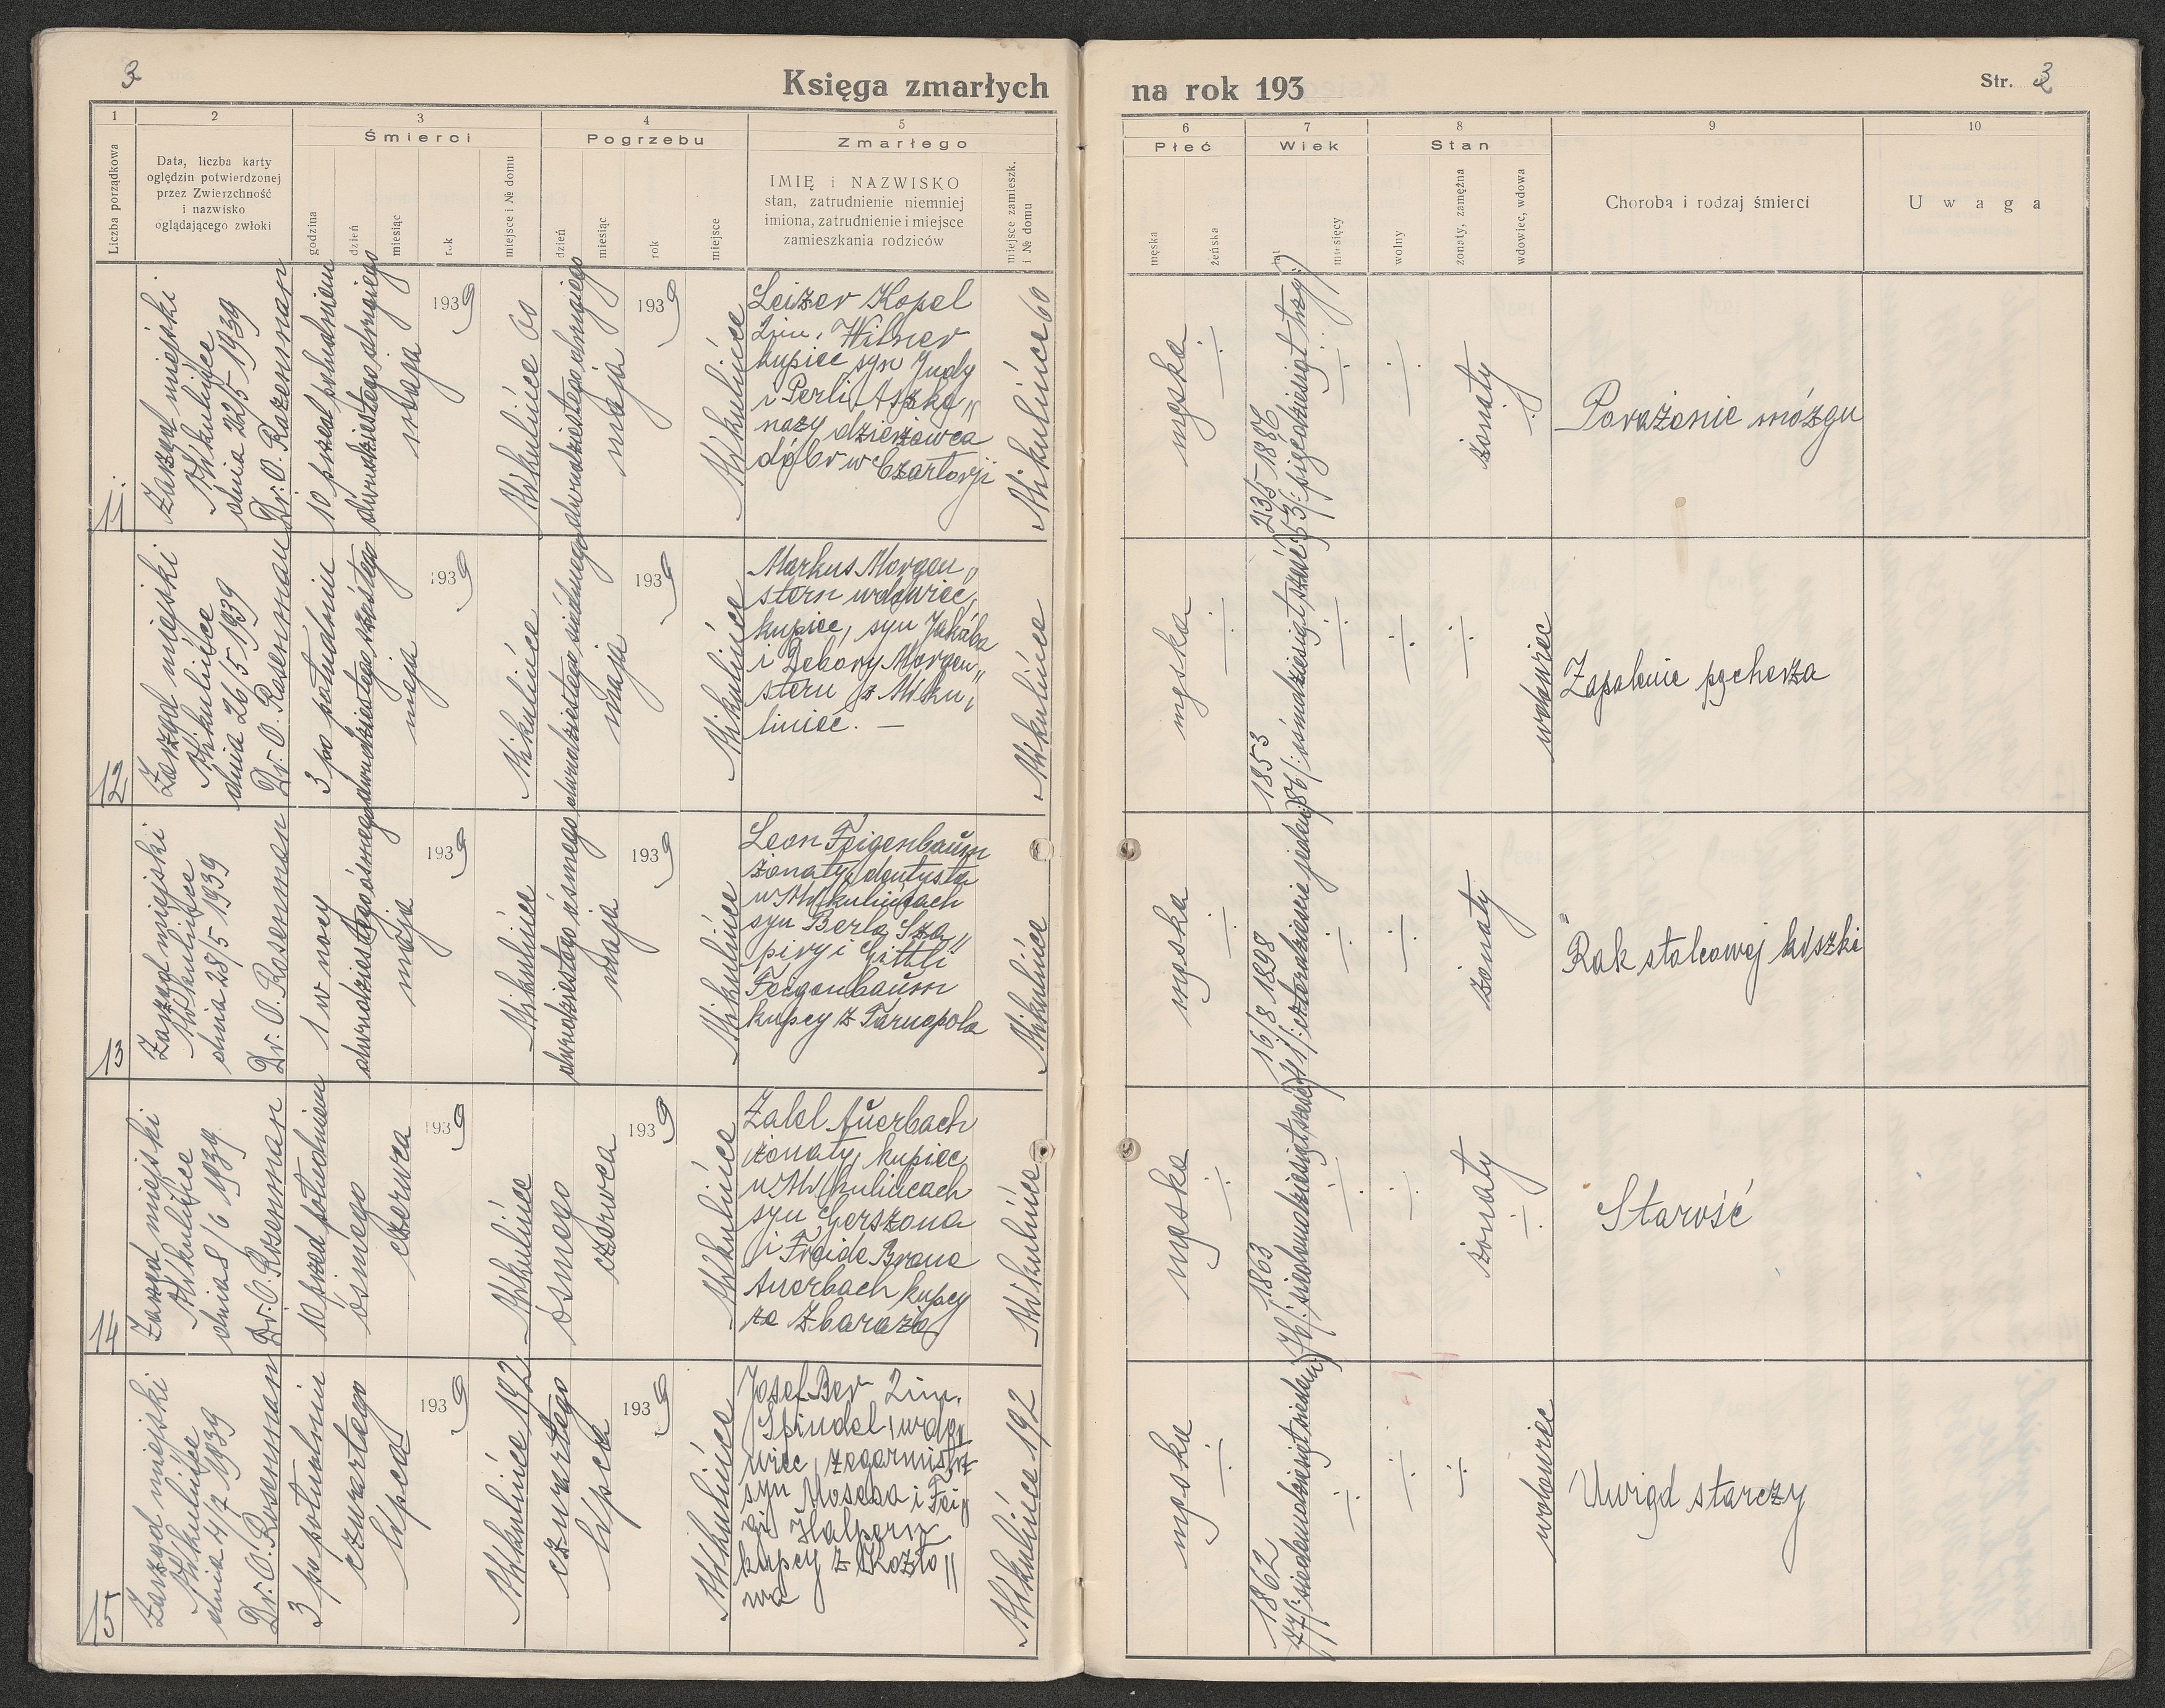 3
Księga zmarłych
na rok 193
Str. 3
1
2
3
4
5
6
7
8
9
10
Liczba porządkowa
Data, liczba karty
oględzin potwierdzonej
przez Zwierzchność
i nazwisko
oglądającego zwłoki
Śmierci
godzina
dzień
miesiąc
rok
miejsce i № domu
Pogrzebu
dzień
miesiąc
rok
miejsce
Zmarłego
IMIĘ i NAZWISKO
stan, zatrudnienie niemniej
imiona, zatrudnienie i miejsce
zamieszkania rodziców
miejsce zamieszk.
i № domu
Płeć
męska
żeńska
Wiek
lat
miesięcy
Stan
wolny
żonaty, zamężna
wdowiec, wdowa
Choroba i rodzaj śmierci
Uwaga
11
Zarząd miejski
Mikulińce
dnia 22/5 1939
Dr. O. Rosenman
10 przed południem
dwudziestego drugiego
maja
1939
Mikulińce 60
dwudziestego drugiego
maja
1939
Mikulińce
Leizer Kopel
2 im. Wilner
kupiec syn Judy
i Perli Aszke„
nazy dzierżawca
dóbr w Czartorji
Mikulińce 60
męska
23/5 1886
53/: pięćdziesiąt trzy:/
żonaty
Porażenie mózgu
12
Zarząd miejski
Mikulińce
dnia 26/5 1939
Dr. O. Rosenman
3 po południu
dwudziestego szóstego
maja
1939
Mikulińce
dwudziestego siódmego
maja
1939
Mikulińce
Markus Morgen„
stern wdowiec,
kupiec, syn Jakóba
i Debory Morgen„
stern z Miku„
liniec. —
Mikulińce
męska
1853
86/: ośmdziesiąt sześć:/
wdowiec
Zapalenie pęcherza
13
Zarząd miejski
Mikulińce
dnia 28/5 1939
Dr. O. Rosenman
1 w nocy
dwudziestego ósmego
maja
1939
Mikulińce
dwudziestego ósmego
maja
1939
Mikulińce
Leon Feigenbaum
żonaty, dentysta
w Mikulińcach
syn Berla Sza„
piry i Gittli
Feigenbaum
kupcy z Tarnopola
Mikulińce
męska
16/8 1898
41/: czterdzieście jeden:/
żonaty
Rak stolcowej kiszki
14
Zarząd miejski
Mikulińce
dnia 8/6 1939
Dr. O. Rosenman
10 przed południem
ósmego
czerwca
1939
Mikulińce
ósmego
czerwca
1939
Mikulińce
Zalel Auerbach
żonaty, kupiec
w Mikulińcach
syn Gerszona
i Freide Brane
Auerbach kupcy
ze Zbaraża
Mikulińce
męska
1863
76/: siedemdziesiąt sześć:/
żonaty
Starość
15
Zarząd miejski
Mikulińce
dnia 4/7 1939
Dr. O. Rosenman
3 po południu
czwartego
lipca
1939
Mikulińce 192
czwartego
lipca
1939
Mikulińce
Josef Ber 2 im.
Spindel, wdo„
wiec, zegarmistrz
syn Mosesa i Fei„
gi Halpern
kupcy z Kozło„
wa
Mikulińce 192
męska
1862
77/: siedemdziesiąt siedem:/
wdowiec
Uwiąd starczy